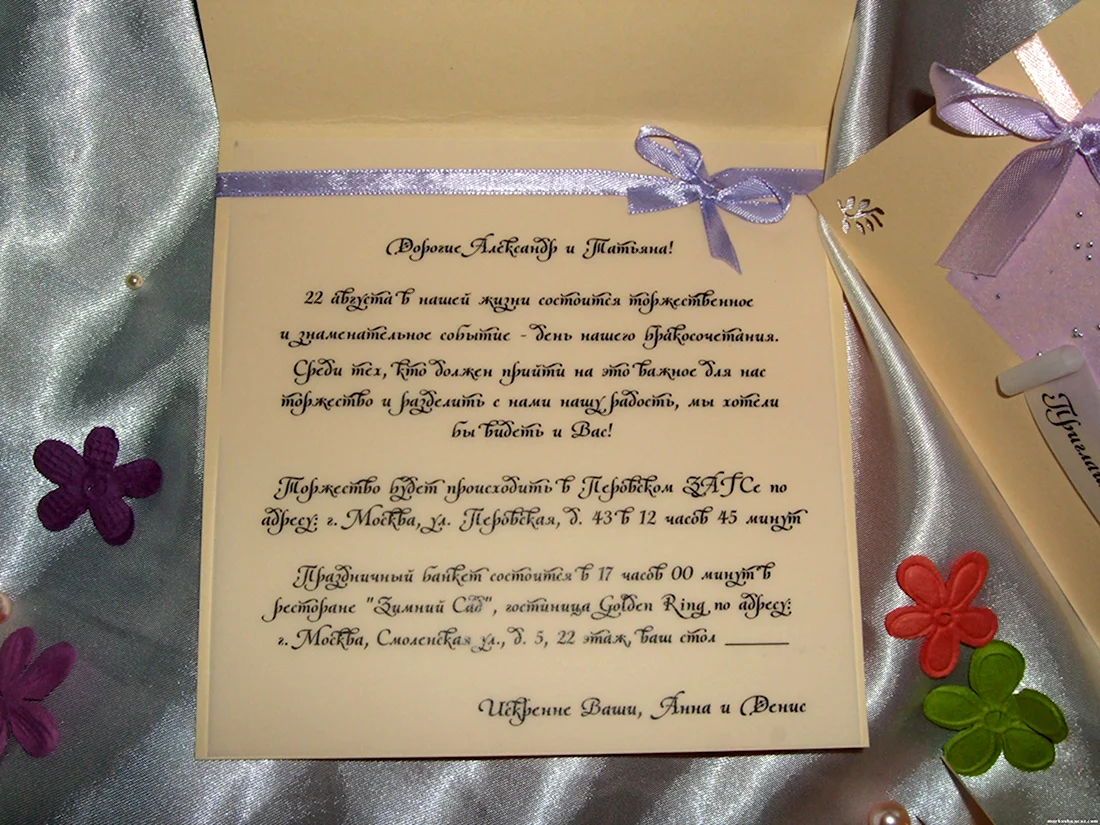 Дорогие Александр и Татьяна!
22 августа в нашей жизни состоится торжественное
и знаменательное событие - день нашего бракосочетания.
Среди тех, кто должен прийти на это важное для нас
торжество и разделить с нами нашу радость, мы хотели
бы видеть и Вас!
Торжество будет происходить в Перовском ЗАГСе по
адресу: г. Москва, ул. Перовская, д. 43 в 12 часов 45 минут
Праздничный банкет состоится в 17 часов 00 минут в
ресторане "Зимний Сад", гостиница Golden Ring по адресу:
г. Москва, Смоленская ул., д. 5, 22 этаж, ваш стол ______
Искренне Ваши, Анна и Денис